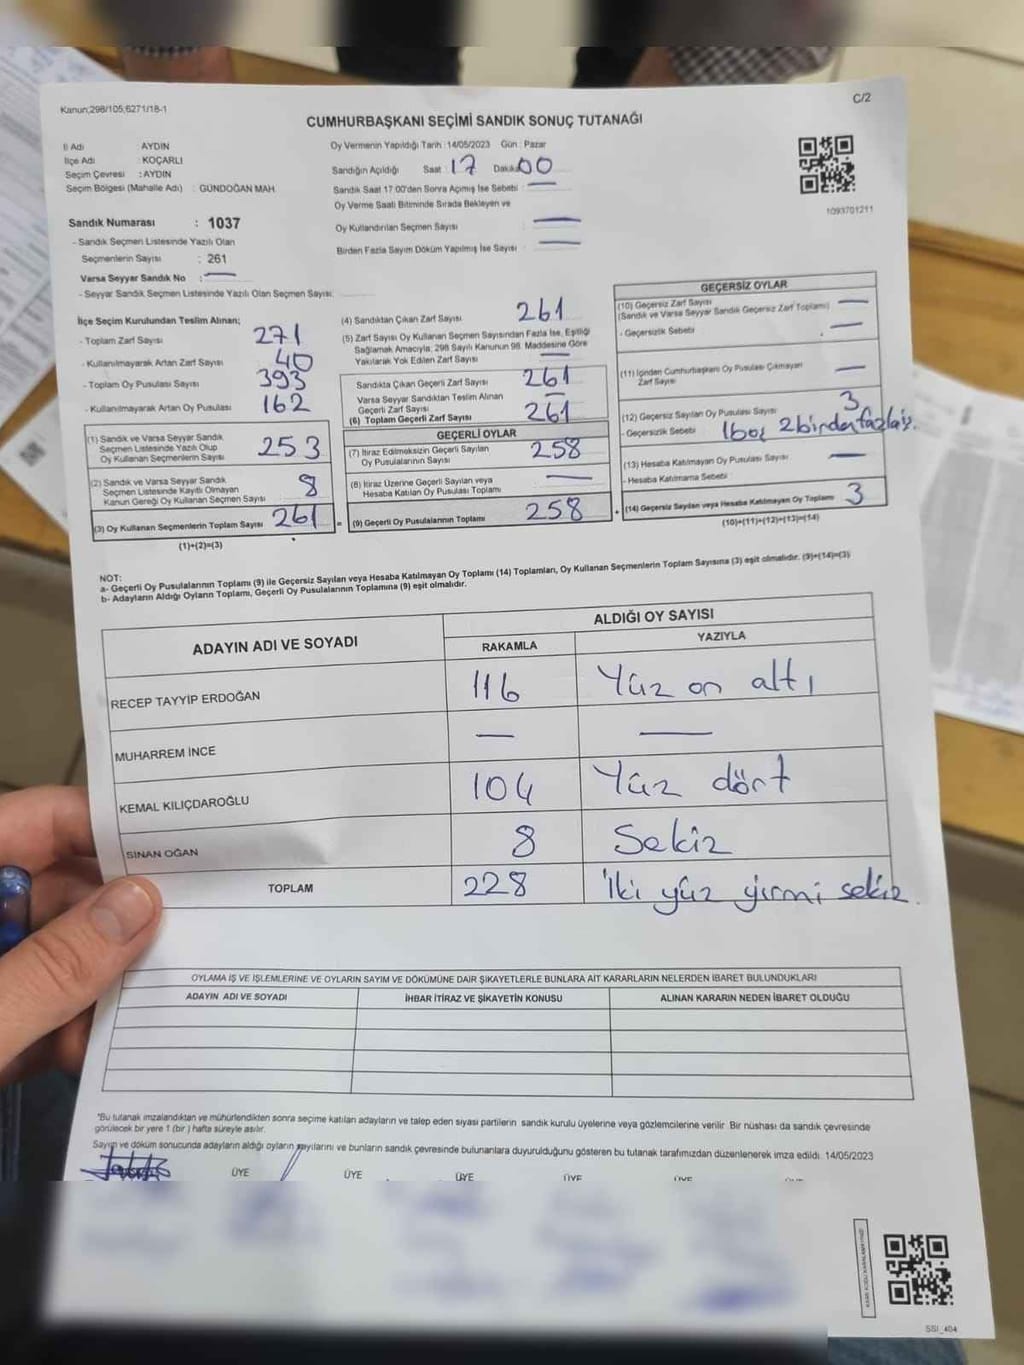 Kanun;298/105;6271/18-1
C/2
CUMHURBAŞKANI SEÇİMİ SANDIK SONUÇ TUTANAĞI
İl Adı AYDIN
İlçe Adı : KOÇARLI
Seçim Çevresi : AYDIN
Seçim Bölgesi (Mahalle Adı) : GÜNDOĞAN MAH.
Sandık Numarası : 1037
- Sandık Seçmen Listesinde Yazılı Olan
Seçmenlerin Sayısı : 261
Varsa Seyyar Sandık No : —
- Seyyar Sandık Seçmen Listesinde Yazılı Olan Seçmen Sayısı:
Oy Vermenin Yapıldığı Tarih : 14/05/2023 Gün : Pazar
Sandığın Açıldığı Saat : 17 Dakika: 00
Sandık Saat 17:00'den Sonra Açılmış İse Sebebi : —
Oy Verme Saati Bitiminde Sırada Bekleyen ve
Oy Kullandırılan Seçmen Sayısı : —
Birden Fazla Sayım Döküm Yapılmış İse Sayısı : —
1093701211
İlçe Seçim Kurulundan Teslim Alınan;
- Toplam Zarf Sayısı 271
- Kullanılmayarak Artan Zarf Sayısı 40
- Toplam Oy Pusulası Sayısı 393
- Kullanılmayarak Artan Oy Pusulası 162
(1) Sandık ve Varsa Seyyar Sandık
Seçmen Listesinde Yazılı Olup
Oy Kullanan Seçmenlerin Sayısı 253
(2) Sandık ve Varsa Seyyar Sandık
Seçmen Listesinde Kayıtlı Olmayan
Kanun Gereği Oy Kullanan Seçmen Sayısı 8
(3) Oy Kullanan Seçmenlerin Toplam Sayısı 261
(1)+(2)=(3)
(4) Sandıktan Çıkan Zarf Sayısı 261
(5) Zarf Sayısı Oy Kullanan Seçmen Sayısından Fazla İse, Eşitliği
Sağlamak Amacıyla; 298 Sayılı Kanunun 98. Maddesine Göre
Yakılarak Yok Edilen Zarf Sayısı —
Sandıkta Çıkan Geçerli Zarf Sayısı 261
Varsa Seyyar Sandıktan Teslim Alınan
Geçerli Zarf Sayısı —
(6) Toplam Geçerli Zarf Sayısı 261
GEÇERLİ OYLAR
(7) İtiraz Edilmeksizin Geçerli Sayılan
Oy Pusulalarının Sayısı 258
(8) İtiraz Üzerine Geçerli Sayılan veya
Hesaba Katılan Oy Pusulası Toplamı —
= (9) Geçerli Oy Pusulalarının Toplamı 258
GEÇERSİZ OYLAR
(10) Geçersiz Zarf Sayısı
(Sandık ve Varsa Seyyar Sandık Geçersiz Zarf Toplamı) —
- Geçersizlik Sebebi : —
(11) İçinden Cumhurbaşkanı Oy Pusulası Çıkmayan
Zarf Sayısı —
(12) Geçersiz Sayılan Oy Pusulası Sayısı 3
- Geçersizlik Sebebi 1boş 2birden fazla iş.
(13) Hesaba Katılmayan Oy Pusulası Sayısı —
- Hesaba Katılmama Sebebi :
+ (14) Geçersiz Sayılan veya Hesaba Katılmayan Oy Toplamı 3
(10)+(11)+(12)+(13)=(14)
NOT:
a- Geçerli Oy Pusulalarının Toplamı (9) ile Geçersiz Sayılan veya Hesaba Katılmayan Oy Toplamı (14) Toplamları, Oy Kullanan Seçmenlerin Toplam Sayısına (3) eşit olmalıdır. (9)+(14)=(3)
b- Adayların Aldığı Oyların Toplamı, Geçerli Oy Pusulalarının Toplamına (9) eşit olmalıdır.
ADAYIN ADI VE SOYADI
ALDIĞI OY SAYISI
RAKAMLA YAZIYLA
RECEP TAYYİP ERDOĞAN 116 Yüz on altı
MUHARREM İNCE — —
KEMAL KILIÇDAROĞLU 104 Yüz dört
SİNAN OĞAN 8 Sekiz
TOPLAM 228 İki yüz yirmi sekiz.
OYLAMA İŞ VE İŞLEMLERİNE VE OYLARIN SAYIM VE DÖKÜMÜNE DAİR ŞİKAYETLERLE BUNLARA AİT KARARLARIN NELERDEN İBARET BULUNDUKLARI
ADAYIN ADI VE SOYADI İHBAR İTİRAZ VE ŞİKAYETİN KONUSU ALINAN KARARIN NEDEN İBARET OLDUĞU
"Bu tutanak imzalandıktan ve mühürlendikten sonra seçime katılan adayların ve talep eden siyasi partilerin sandık kurulu üyelerine veya gözlemcilerine verilir. Bir nüshası da sandık çevresinde
görülecek bir yere 1 (bir) hafta süreyle asılır.
Sayım ve döküm sonucunda adayların aldığı oyların sayılarını ve bunların sandık çevresinde bulunanlara duyurulduğunu gösteren bu tutanak tarafımızdan düzenlenerek imza edildi. 14/05/2023
ÜYE ÜYE ÜYE ÜYE ÜYE
SSI_404